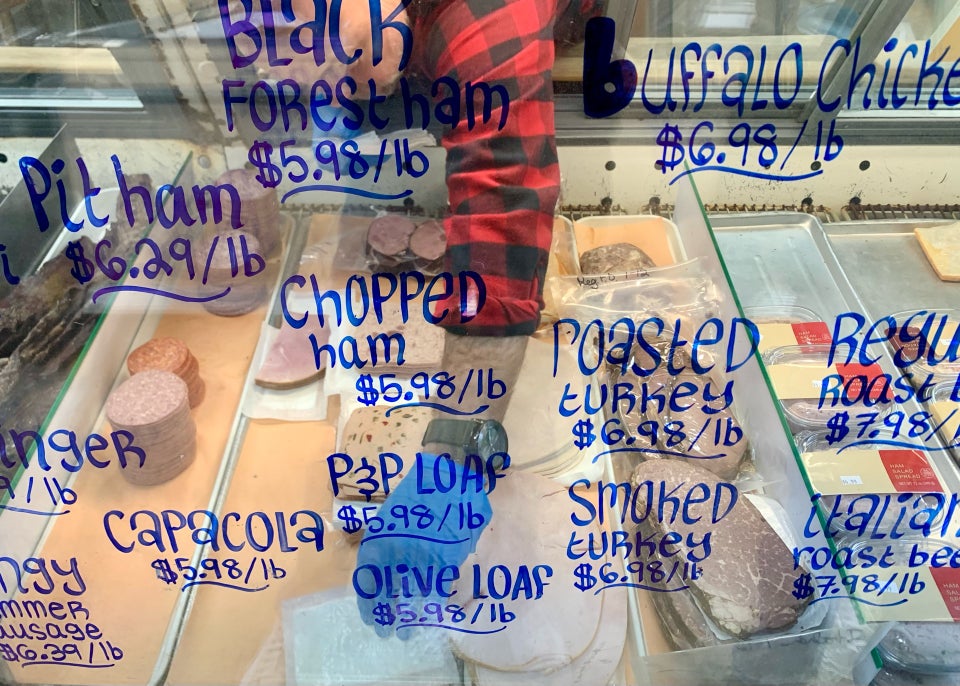 Black
Forest ham
$5.98/lb
Buffalo Chicke
$6.98/lb
Pit ham
$6.29/lb
i
Chopped
ham
$5.98/lb
Roasted
turkey
$6.98/lb
Regu
Roast b
$7.98/l
anger
9/lb
P&P Loaf
$5.98/lb
Capacola
$5.98/lb
Smoked
turkey
$6.98/lb
Italian
roast bee
$7.98/lb
Olive Loaf
$5.98/lb
ngy
mmer
ausage
$6.39/lb
HAM
SALAD
SPREAD